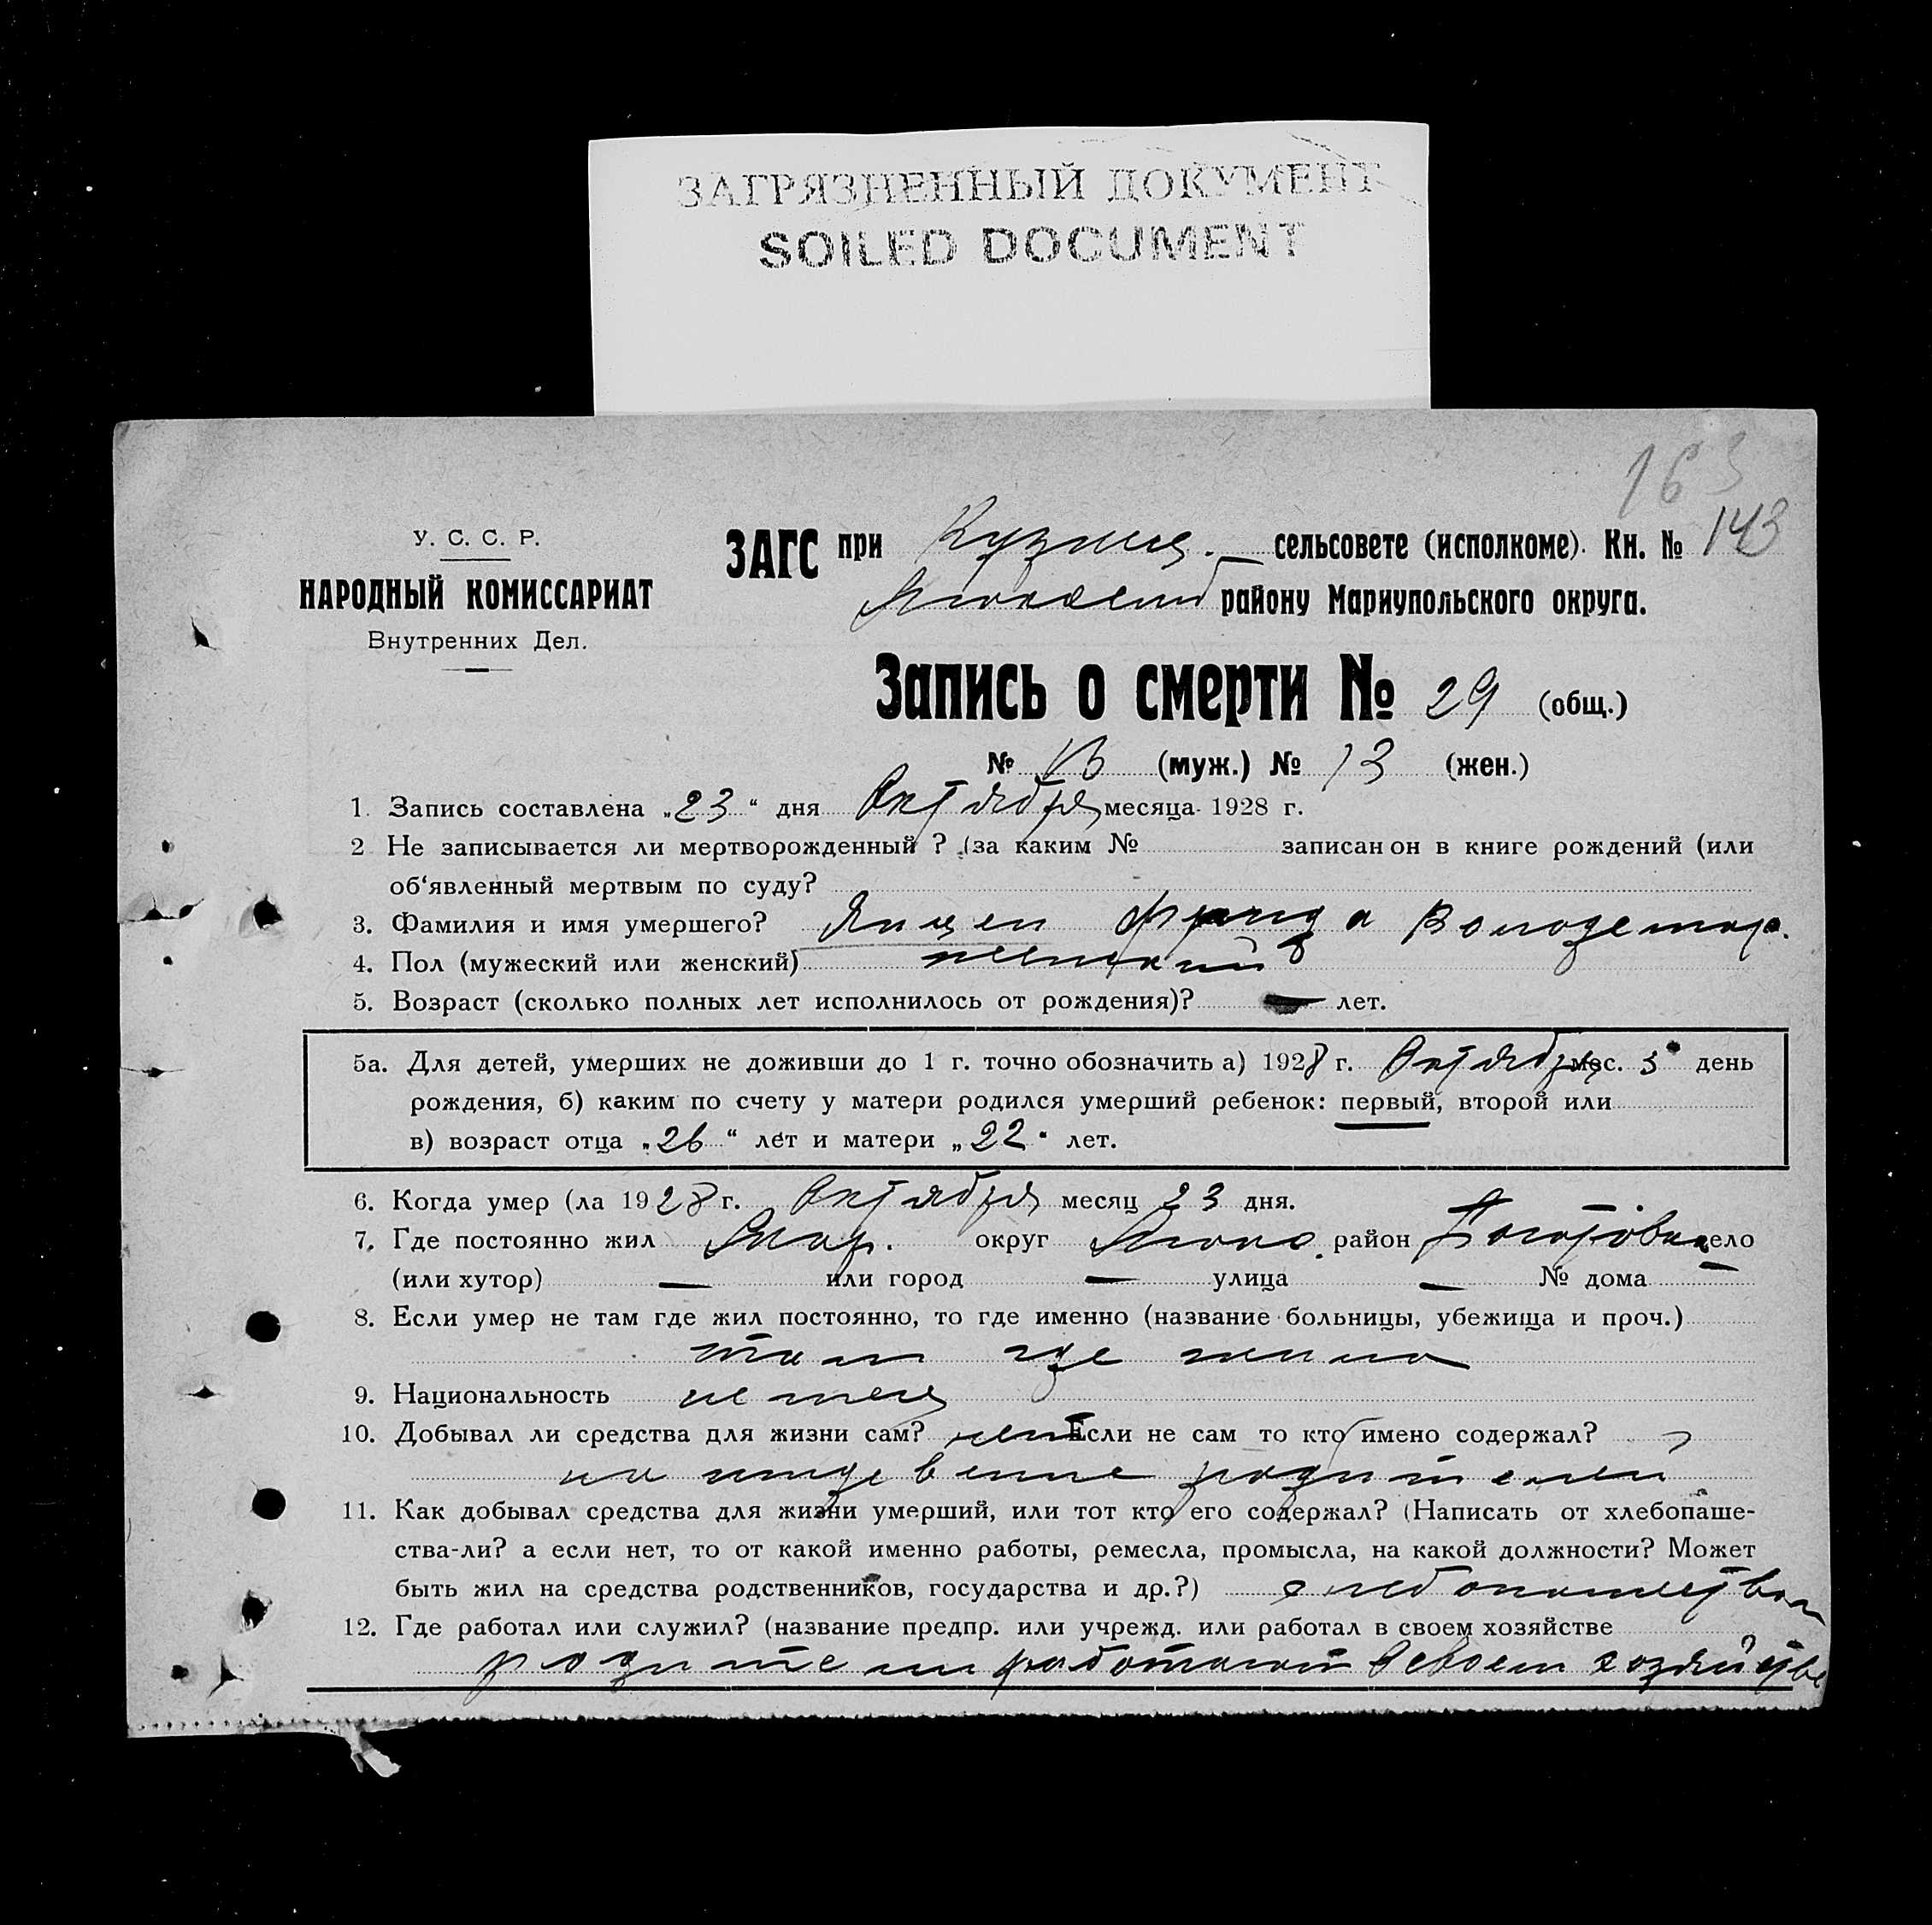 ЗАГРЯЗНЕННЫЙ ДОКУМЕНТ
SOILED DOCUMENT
163
У. С. С. Р.
НАРОДНЫЙ КОМИССАРИАТ
Внутренних Дел.
ЗАГС при сельсовете (исполкоме). Кн. № 143
району Мариупольского округа.
Запись о смерти № 29 (общ.)
№ (муж.) № 13 (жен.)
1. Запись составлена „23“ дня Октября месяца 1928 г.
2 Не записывается ли мертворожденный ? (за каким № записан он в книге рождений (или
об‘явленный мертвым по суду?
3. Фамилия и имя умершего? Янцен Фрида
4. Пол (мужеский или женский) женский
5. Возраст (сколько полных лет исполнилось от рождения)? — лет.
5а. Для детей, умерших не доживши до 1 г. точно обозначить а) 1928 г. Октября мес. 3 день
рождения, б) каким по счету у матери родился умерший ребенок: первый, второй или
в) возраст отца „26“ лет и матери „22“ лет.
6. Когда умер (ла 1928 г. Октября месяц 23 дня.
7. Где постоянно жил Мар. округ район село
(или хутор) — или город — улица — № дома —
8. Если умер не там где жил постоянно, то где именно (название больницы, убежища и проч.)
там где жила
9. Национальность немец
10. Добывал ли средства для жизни сам? нет Если не сам то кто имено содержал?
на иждевение родителей
11. Как добывал средства для жизни умерший, или тот кто его содержал? (Написать от хлебопаше-
ства-ли? а если нет, то от какой именно работы, ремесла, промысла, на какой должности? Может
быть жил на средства родственников, государства и др.?) хлебопашеством
12. Где работал или служил? (название предпр. или учрежд. или работал в своем хозяйстве
родители работают в своем хозяйстве